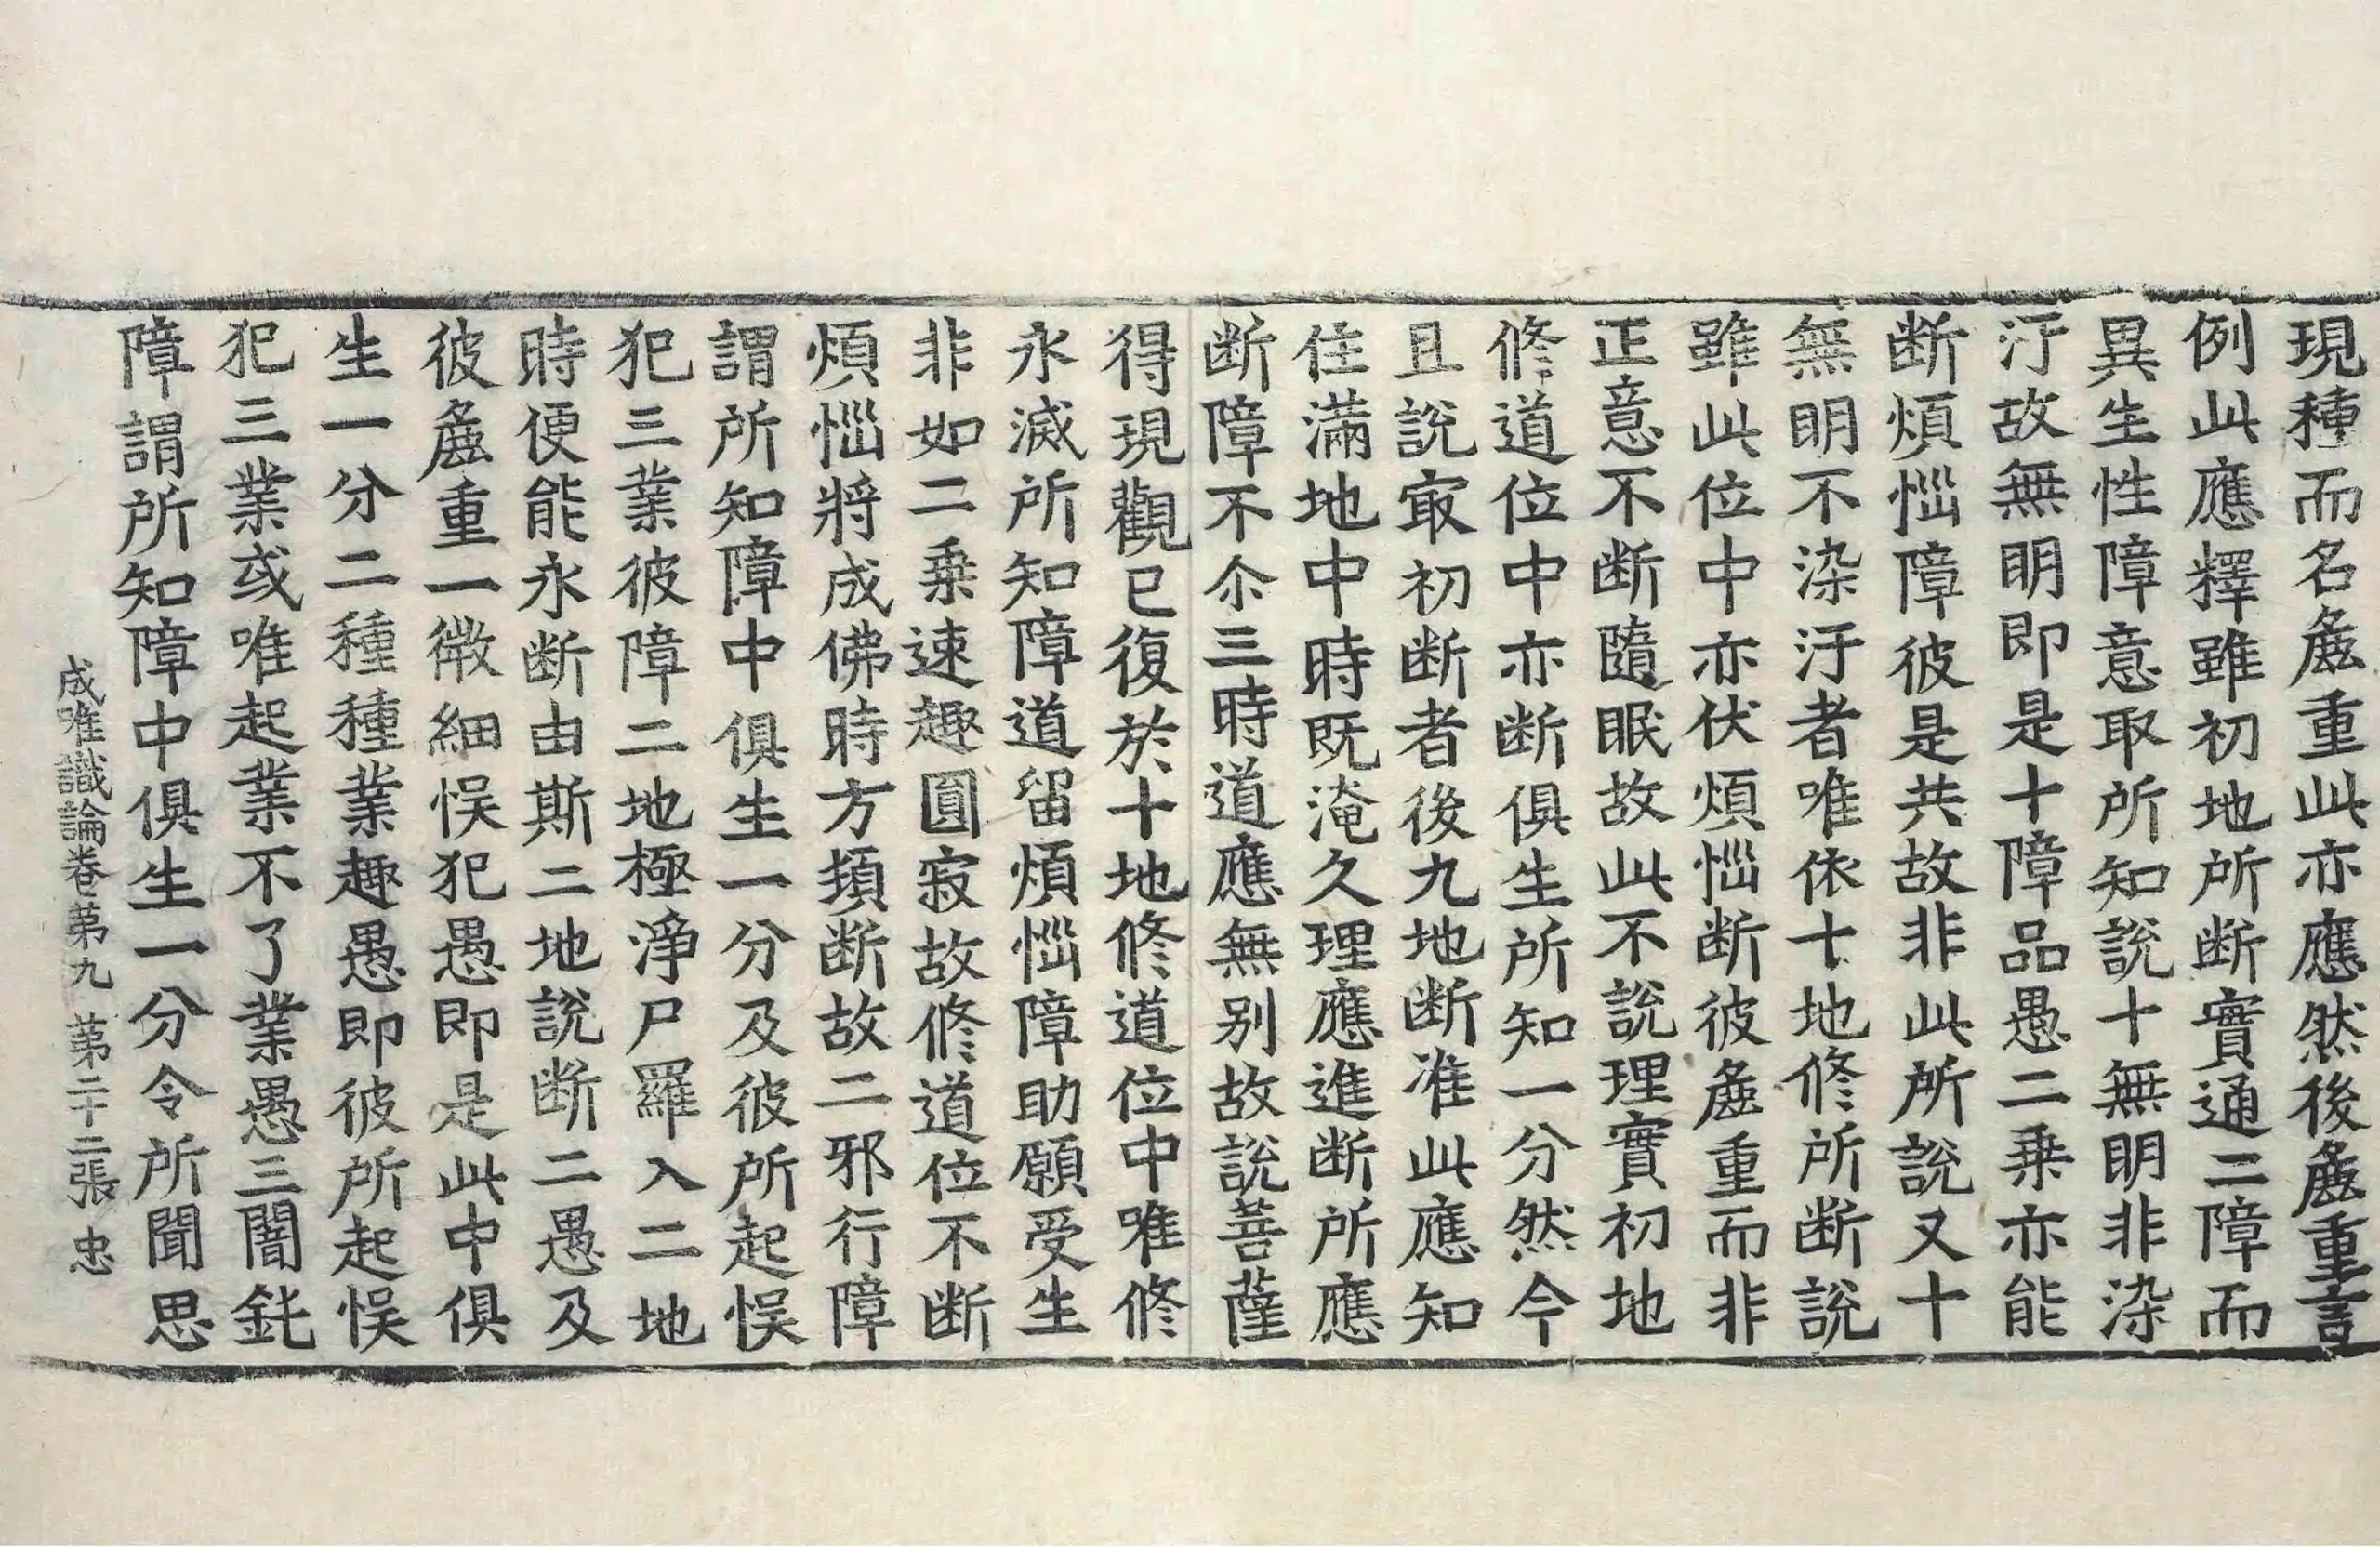 現種而名麁重此亦應然後麁重言
例此應釋雖初地所断實通二障而
異生性障意取所知說十無明非染
汙故無明即是十障品愚二乗亦能
断煩惱障彼是共故非此所說又十
無明不染汙者唯依十地修所断說
雖此位中亦伏煩惱断彼麁重而非
正意不断隨眠故此不說理實初地
修道位中亦断俱生所知一分然今
且說㝡初断者後九地断准此應知
住滿地中時既淹久理應進断所應
断障不尒三時道應無別故說菩薩
得現觀已復於十地修道位中唯修
永滅所知障道留煩惱障助願受生
非如二乗速趣圓寂故修道位不断
煩惱將成佛時方頓断故二邪行障
謂所知障中俱生一分及彼所起悮
犯三業彼障二地極淨尸羅入二地
時便能永断由斯二地說断二愚及
彼麁重一微細悮犯愚即是此中俱
生一分二種種業趣愚即彼所起悮
犯三業或唯起業不了業愚三闇鈍
障謂所知障中俱生一分令所聞思
成唯識論卷苐九 苐二十二張 忠